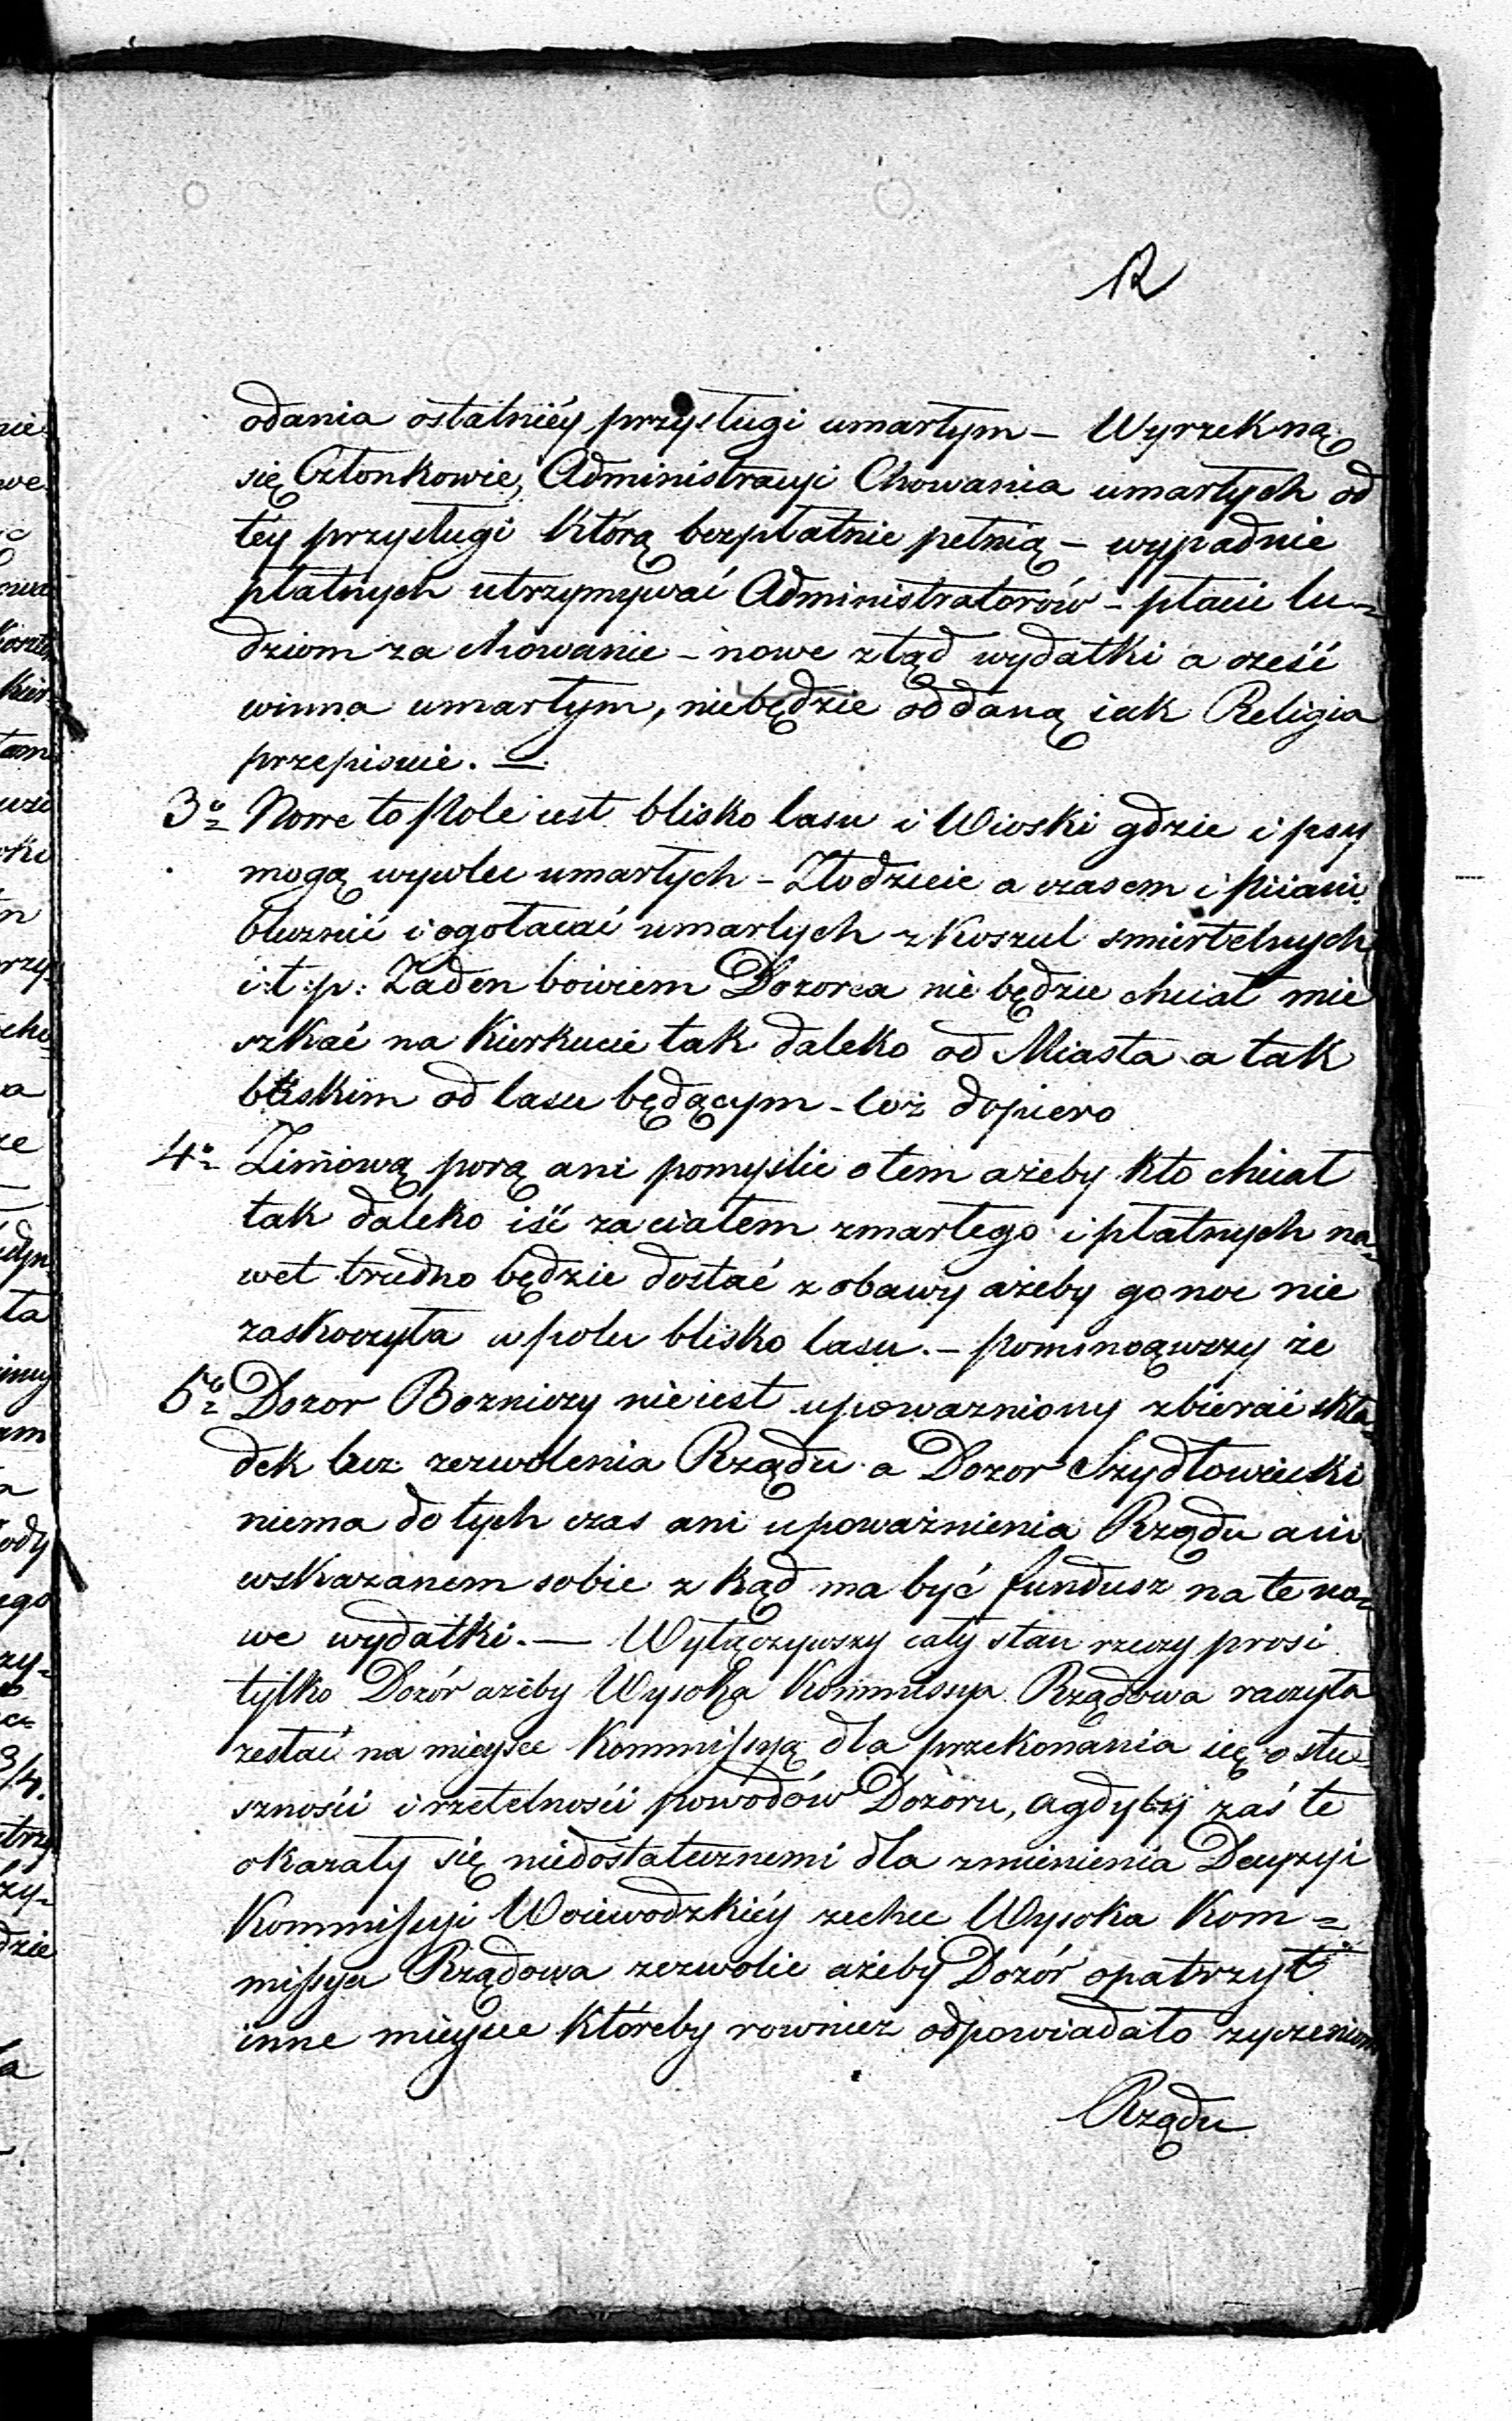 12
odania ostatniéy przysługi umarłym – Wyrzekną
się Członkowie, Administracyi Chowania umarłych od
téy przysługi którą bezpłatnie pełnią – wypadnie
płatnych utrzymywać Administratorów – płacić lu=
dziom za chowanie – nowe ztąd wydatki a cześć
winna umarłym, niebędzie oddaną iak Religia
przepisuie. —
3o Nowe to Pole iest blisko lasu i Wioski gdzie i psy
mogą wywlec umarłych – Złodzieie a czasem i Piiani
bluznić i ogołacać umarłych z Koszul smiertelnych
i: t: p: Zaden bowiem Dozorca nie będzie chciał mie
szkać na Kierkucie tak daleko od Miasta a tak
bliskim od lasu będącym – coż dopiero
4o Zimową porą ani pomyslić o tem ażeby kto chciał
tak daleko iść za ciałem zmarłego i płatnych na=
wet trudno będzie dostać z obawy ażeby go noc nie
zaskoczyła w polu blisko lasu. – pominąwszy że
5o Dozor Bozniczy nieiest upoważniony zbierać skła=
dek bez zezwolenia Rządu a Dozor Szydłowiecki
niema do tych czas ani upoważnienia Rządu ani
wskazanem sobie z kąd ma być fundusz na te no=
we wydatki. — Wyłączywszy cały stan rzeczy prosi
tylko Dozór ażeby Wysoka Kommissya Rządowa raczyła
zesłać na mieysce Kommissyą dla przekonania się o słu=
szności i rzetelności powodów Dozoru, a gdyby zaś te
okazały się niedostatecznemi dla zmienienia Decyzyi
Kommissyi Woiewodzkiéy zechce Wysoka Kom=
missya Rządowa zezwolić ażeby Dozór opatrzył
inne mieysce któreby rownież odpowiadało zyczeniom
Rządu